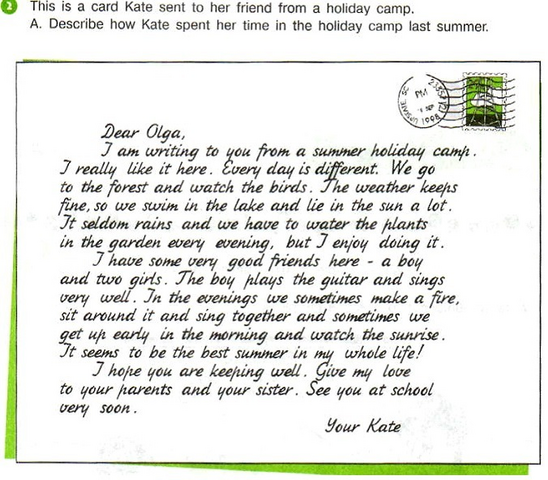 2 This is a card Kate sent to her friend from a holiday camp.
A. Describe how Kate spent her time in the holiday camp last summer.
PM
1998
Dear Olga,
I am writing to you from a summer holiday camp.
I really like it here. Every day is different. We go
to the forest and watch the birds. The weather keeps
fine, so we swim in the lake and lie in the sun a lot.
It seldom rains and we have to water the plants
in the garden every evening, but I enjoy doing it.
I have some very good friends here - a boy
and two girls. The boy plays the guitar and sings
very well. In the evenings we sometimes make a fire,
sit around it and sing together and sometimes we
get up early in the morning and watch the sunrise.
It seems to be the best summer in my whole life!
I hope you are keeping well. Give my love
to your parents and your sister. See you at school
very soon.
Your Kate